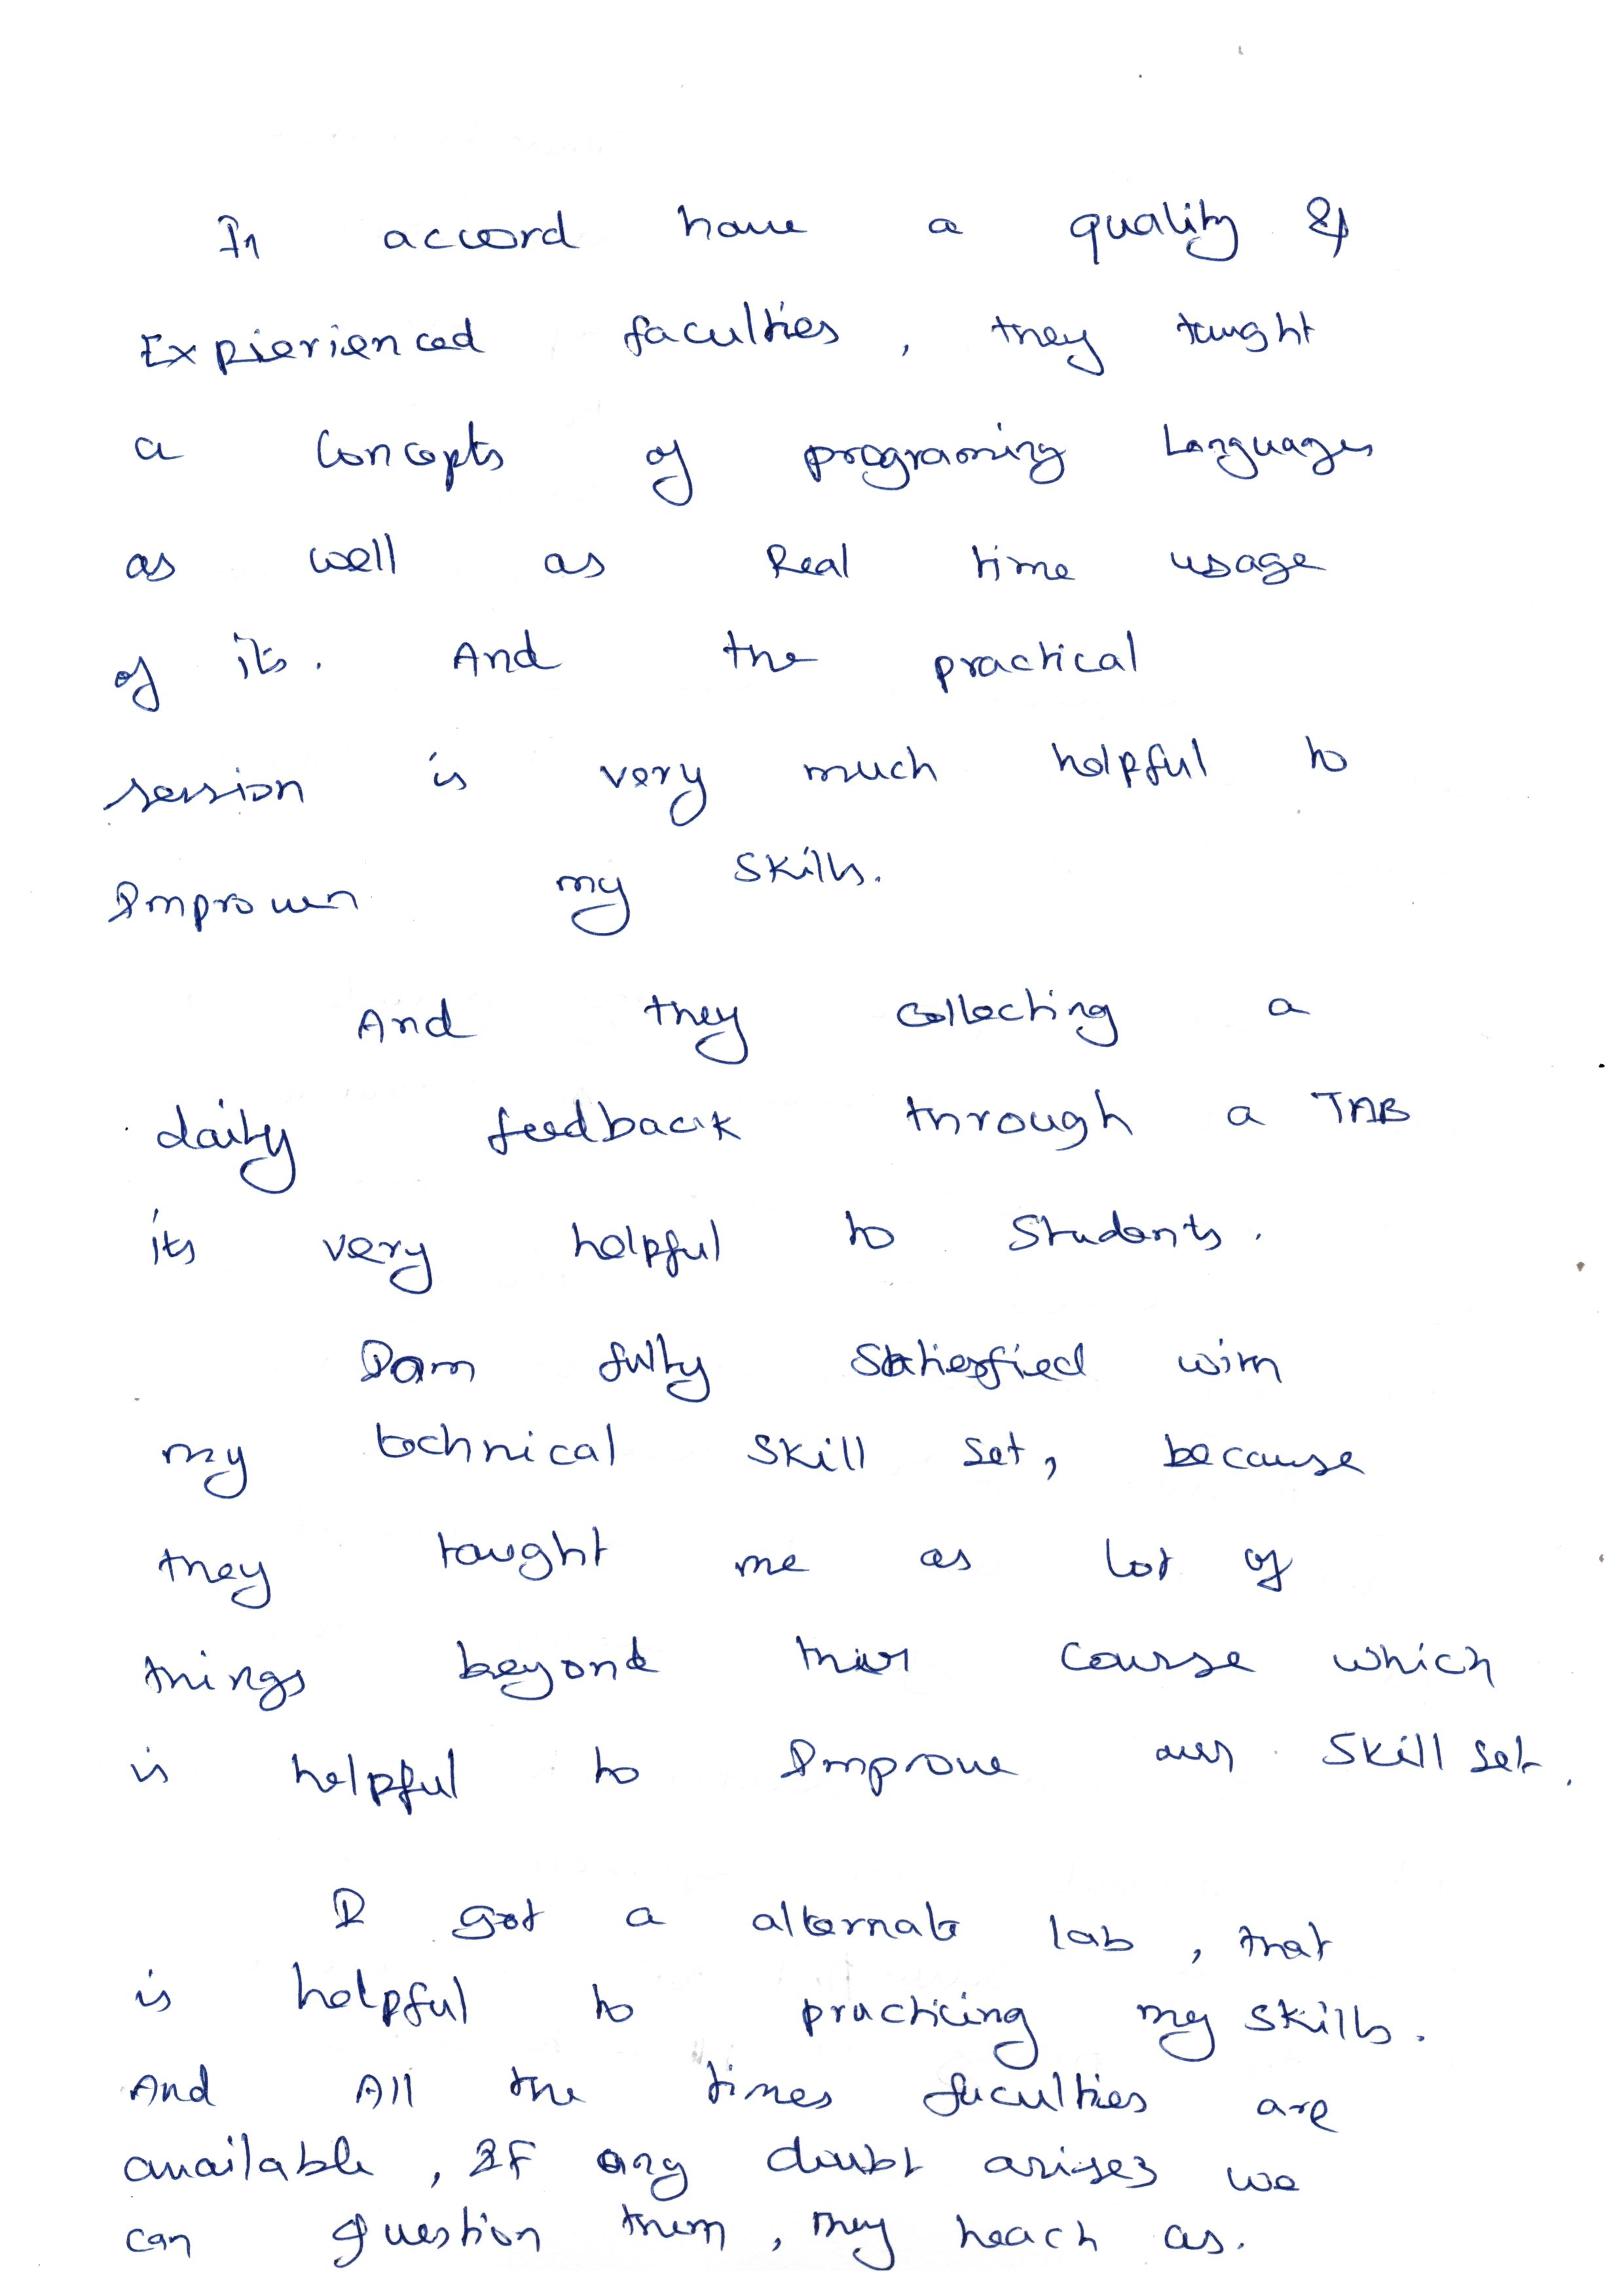 In accord have a quality &
Expierienced faculties, they taught
a Concepts of programing Languages
as well as Real time usage
of its. And the practical
session is very much helpful to
Improven my skills.
And they collecting a
daily feedback through a TAB
its very helpful to Students.
I am fully Satiesfied with
my technical skill set, because
they taught me as lot of
things beyond their course which
is helpful to Improve our skill set.
I got a alternate lab, that
is helpful to practicing my skills.
And All the times faculties are
available, IF any doubt arises we
can question them, they teach as.